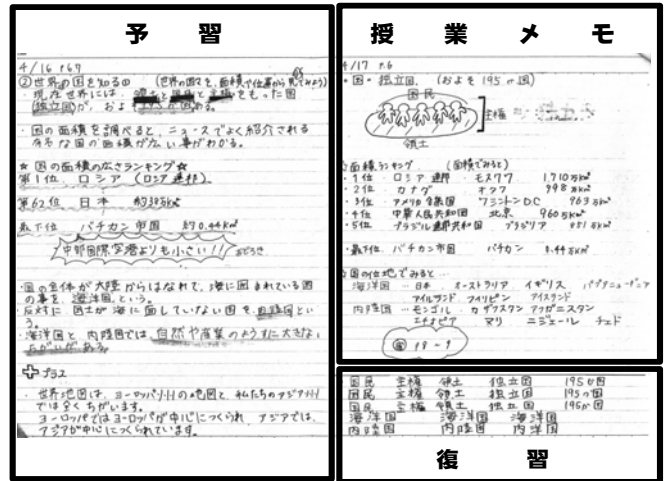 予習
4/16 P67
②世界の国を知るの (世界の国々を、面積や位置から見てみよう)
・現在世界には、領土と国民と主権をもった国
(独立国)が、およそ195か国ある。
・国の面積を調べると、ニュースでよく紹介される
有名な国の面積が広い事がわかる。
☆国の面積の広さランキング☆
第1位 ロシア (ロシア連邦)
第62位 日本 約38万km²
最下位 バチカン市国 約0.44km²
中部国際空港よりも小さい!!
・国の全体が大陸からはなれて、海に囲まれている国
の事を、海洋国という。
・反対に、国土が海に面していない国を内陸国とい
う。
・海洋国と内陸国では、自然や産業のようすに大きな
ちがいがある。
プラス
・世界地図は、ヨーロッパ州の地図と、私たちのアジア州
では全くちがいます。
ヨーロッパではヨーロッパが中心につくられ、アジアでは、
アジアが中心につくられています。
授業メモ
4/17 P.6
・国・独立国. (およそ195ヶ国)
国民
主権
領土
面積ランキング (面積でみると)
・1位 ロシア連邦 モスクワ 1710万km²
・2位 カナダ オタワ 998万km²
・3位 アメリカ合衆国 ワシントンDC 963万km²
・4位 中華人民共和国 北京 960万km²
・5位 ブラジル連邦共和国 ブラジリア 851万km²
・最下位. バチカン市国 バチカン 0.44km²
国の位地でみると…
海洋国…日本 オーストラリア イギリス パプアニューギニア
アイルランド フィリピン アイスランド
内陸国…モンゴル カザフスタン アフガニスタン
エチオピア マリ ニジェール チャド
P8-9
国民 主権 領土 独立国 195か国
国民 主権 領土 独立国 195か国
国民 主権 領土 独立国 195か国
海洋国 海洋国 海洋国
内陸国 内陸国 内洋国
復習